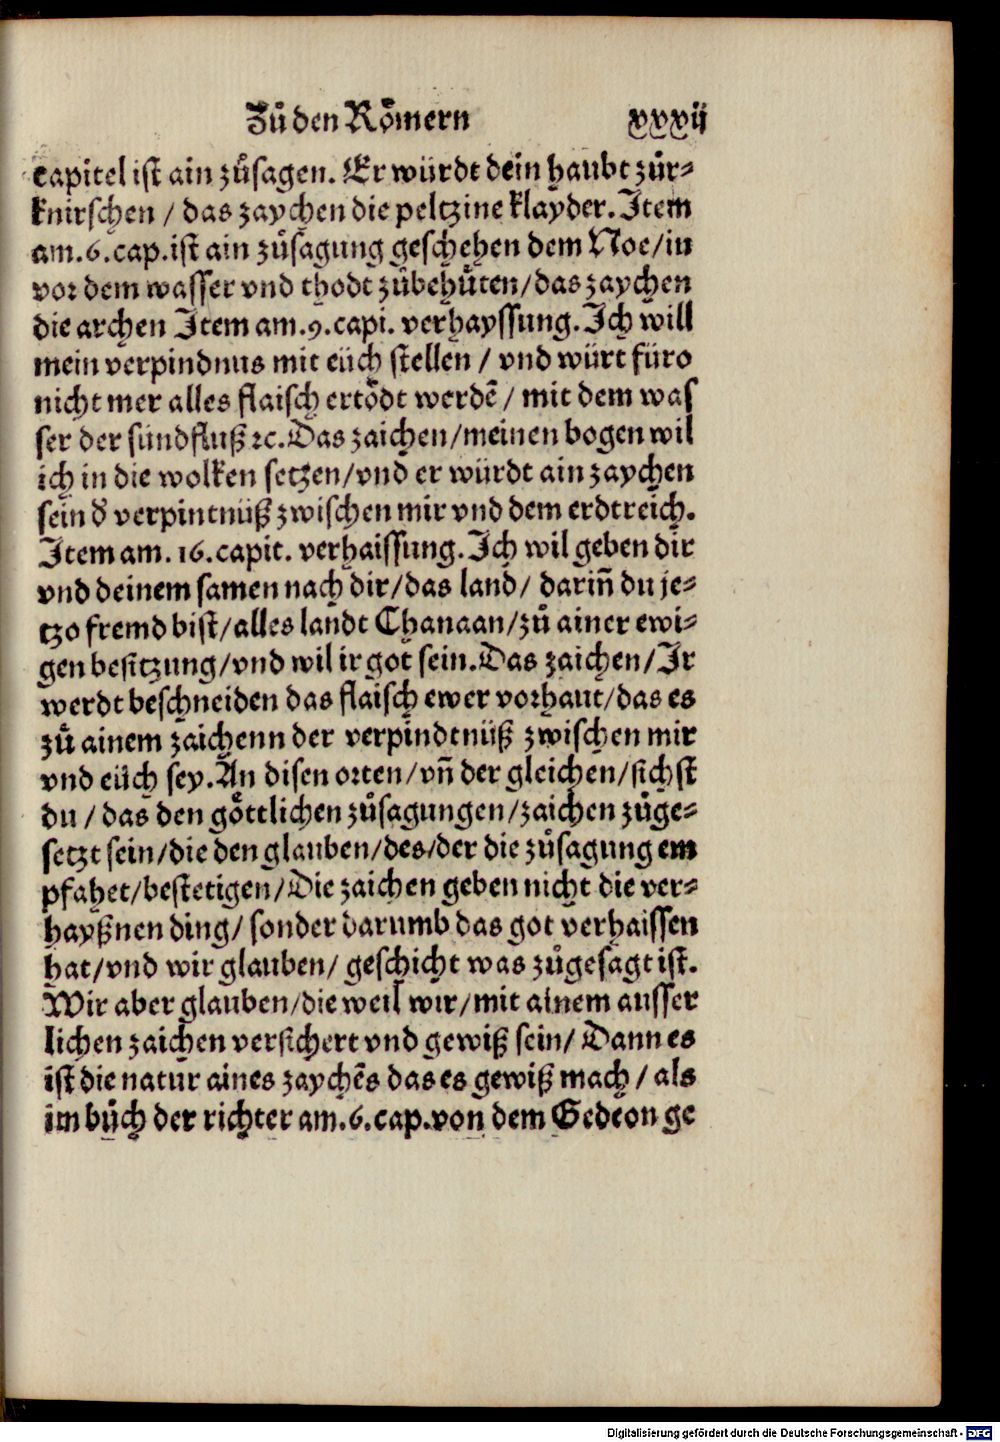 Zů den Rŏmern xxxij
capitel ist ain zůsagen. Er würdt dein haubt zůr⸗
knirschen / das zaychen die peltzine klayder. Item
am. 6. cap. ist ain zůsagung geschehen dem Noe/in
vor dem wasser vnd thodt zůbehůten/das zaychen
die archen Item am. 9. capi. verhayssung. Ich will
mein verpindnus mit eüch stellen / vnd würt füro
nicht mer alles flaisch ertŏdt werdē / mit dem was
ser der sündfluß ꝛc. Das zaichen/meinen bogen wil
ich in die wolken setzen/vnd er würdt ain zaychen
sein d̕ verpintnüß zwischen mir vnd dem erdtreich.
Item am. 16. capit. verhaissung. Ich wil geben dir
vnd deinem samen nach dir/das land/ darin̄ du je⸗
tzo fremd bist/alles landt Chanaan/zů ainer ewi⸗
gen besitzung/vnd wil ir got sein. Das zaichen/Ir
werdt beschneiden das flaisch ewer vorhaut/das es
zů ainem zaichenn der verpindtnüß zwischen mir
vnd eüch sey. An disen orten/vn̄ der gleichen/sichst
du / das den gŏttlichen zůsagungen/zaichen zůge⸗
setzt sein/die den glauben/des/der die zůsagung em
pfahet/bestetigen/Die zaichen geben nicht die ver⸗
hayßnen ding/ sonder darumb das got verhaissen
hat/vnd wir glauben/ geschicht was zůgesagt ist.
Wir aber glauben/die weil wir/mit ainem ausser
lichen zaichen versichert vnd gewiß sein/ Dann es
ist die natur aines zaychēs das es gewiß mach / als
im bůch der richter am. 6. cap. von dem Gedeon ge
Digitalisierung gefördert durch die Deutsche Forschungsgemeinschaft - DFG